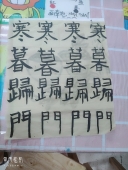 寒寒寒寒
暮暮暮暮
歸歸歸歸
門門門門